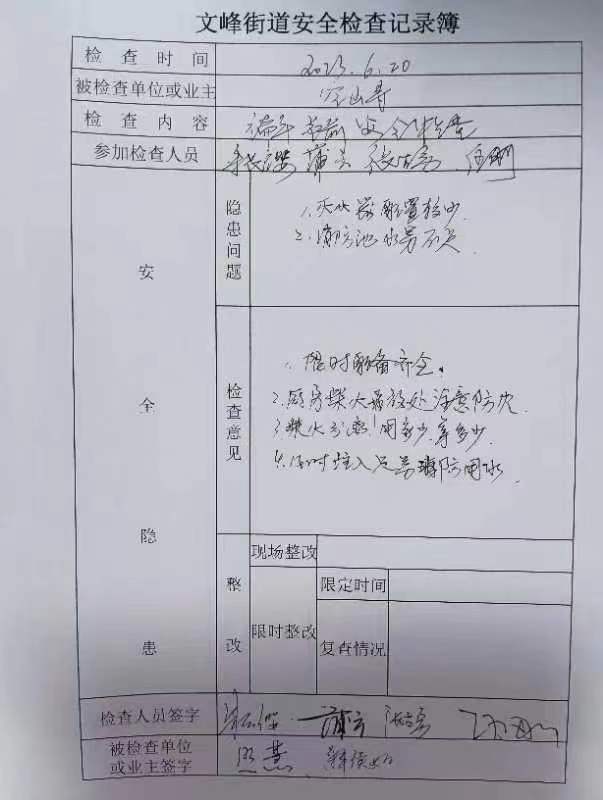 文峰街道安全检查记录簿
检查时间 2023.6.20
被检查单位或业主
检查内容 端午节前安全检查
参加检查人员
安全隐患
隐患问题
1.灭火器配置较少
2.消防池水量不足
检查意见
1.限时配备齐全。
2.厨房柴火存放处注意防火
3.柴火分离!用多少,拿多少.
4.及时注入足量消防用水
整改
现场整改
限时整改
限定时间
复查情况
检查人员签字
被检查单位
或业主签字